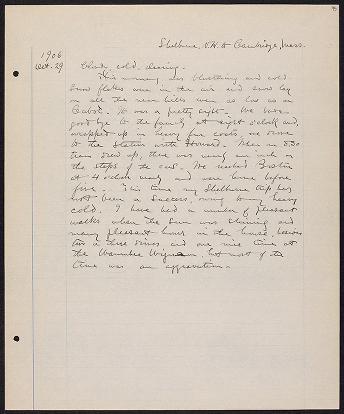 Shelburne, N.H. to Cambridge, Mass.
1906
Oct. 29
Cloudy, cold, clearing.
This morning was blustering and cold.
Snow flakes were in the air and snow lay
on all the near hills even as low as on
Cabot. It was a pretty sight. We bade
good bye to the family at eight o'clock and,
wrapped up in heavy fur coats, we drove
to the station with Howard. When our 8.50
train drew up, there was nearly an inch on
the steps of the cars. We reached Boston
at 4 o'clock nearly and were home before
five. This time my Shelburne trip has
not been a success, owing to my heavy
cold. I have had a number of pleasant
walks when the sun was shining and
many pleasant hours in the house, besides
two or three drives and one nice time at
the Wigwam, but most of the
time was an aggravation.